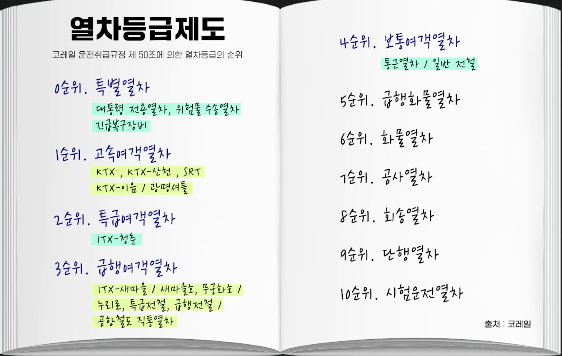 열차등급제도
코레일 운전취급규정 제 50조에 의한 열차등급의 순위
0순위. 특별열차
대통령 전용열차, 위험물 수송열차
긴급복구장비
1순위. 고속여객열차
KTX , KTX-산천 , SRT
KTX-이음 / 광명셔틀
2순위. 특급여객열차
ITX-청춘
3순위. 급행여객열차
ITX-새마을 / 새마을호, 무궁화호 /
누리로, 특급전철, 급행전철 /
공항철도 직통열차
4순위. 보통여객열차
통근열차 / 일반 전철
5순위. 급행화물열차
6순위. 화물열차
7순위. 공사열차
8순위. 회송열차
9순위. 단행열차
10순위. 시험운전열차
출처 : 코레일